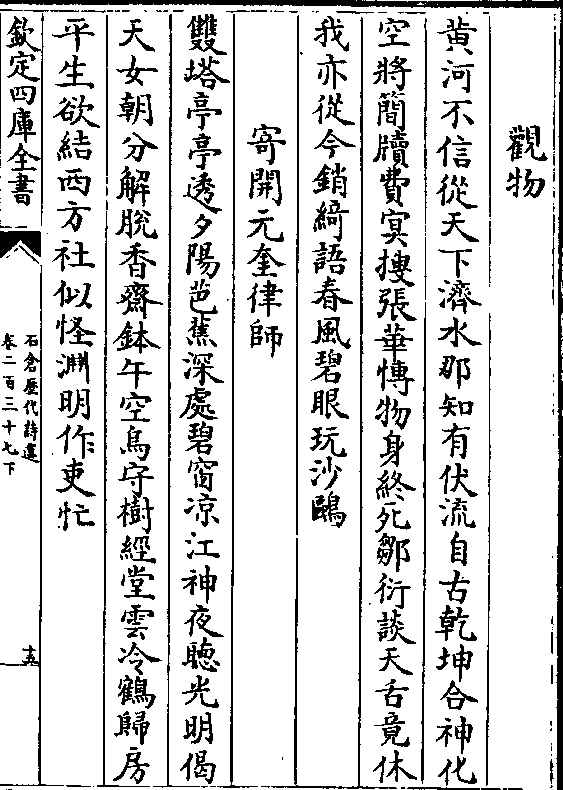 觀物
黃河不信從天下濟水那知有伏流自古乾坤合神化
空將簡牘費冥搜張華愽物身終死鄒衍談天舌竟休
我亦從今銷綺語春風碧眼玩沙鷗
寄開元奎律師
雙塔亭亭透夕陽芭蕉深處碧窗凉江神夜聽光明偈
天女朝分解脫香齋鉢午空鳥守樹經堂雲冷鶴歸房
平生欲結西方社似怪淵明作吏忙
欽定四庫全書
石倉歷代詩選
卷二百三十七下
十五